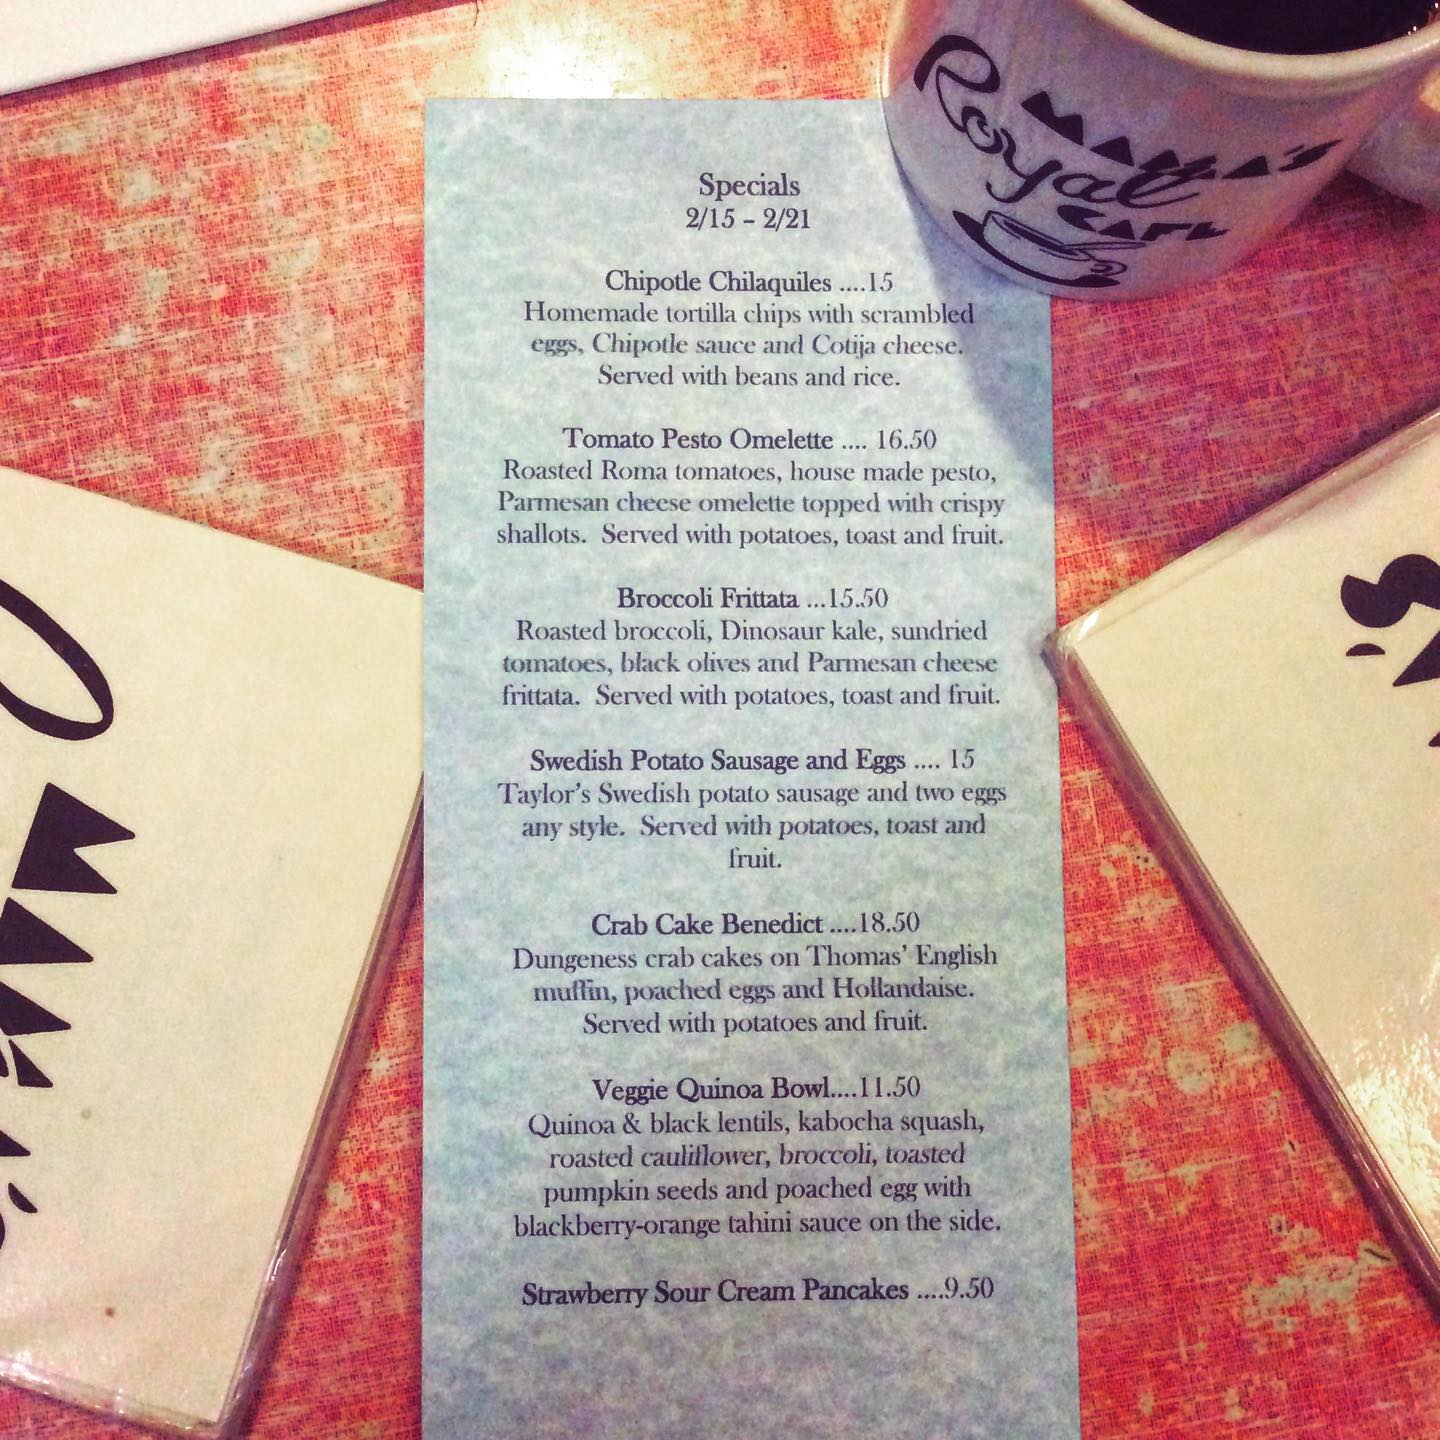 MAMA'S
Royal
CAFE
Specials
2/15 – 2/21
Chipotle Chilaquiles ....15
Homemade tortilla chips with scrambled
eggs, Chipotle sauce and Cotija cheese.
Served with beans and rice.
Tomato Pesto Omelette .... 16.50
Roasted Roma tomatoes, house made pesto,
Parmesan cheese omelette topped with crispy
shallots.  Served with potatoes, toast and fruit.
Broccoli Frittata ...15.50
Roasted broccoli, Dinosaur kale, sundried
tomatoes, black olives and Parmesan cheese
frittata.  Served with potatoes, toast and fruit.
Swedish Potato Sausage and Eggs .... 15
Taylor's Swedish potato sausage and two eggs
any style.  Served with potatoes, toast and
fruit.
Crab Cake Benedict ....18.50
Dungeness crab cakes on Thomas' English
muffin, poached eggs and Hollandaise.
Served with potatoes and fruit.
Veggie Quinoa Bowl....11.50
Quinoa & black lentils, kabocha squash,
roasted cauliflower, broccoli, toasted
pumpkin seeds and poached egg with
blackberry-orange tahini sauce on the side.
Strawberry Sour Cream Pancakes ....9.50